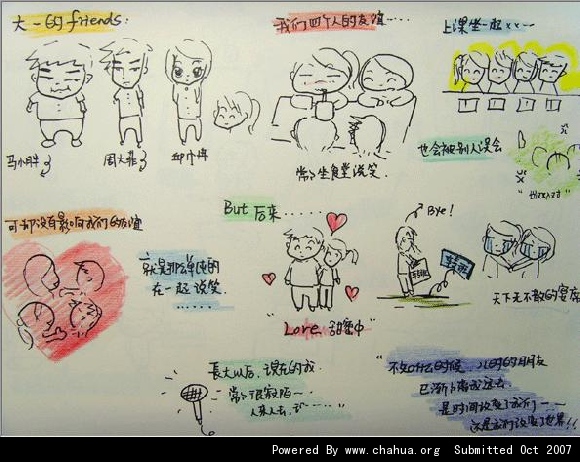 大一的friends:
我们四个人的友谊……
上课坐一起xx——
马小胖
周大菲
常常坐食堂说笑.
也会被别人误会
可却没有影响我们的友谊
就是那么单纯的
在一起说笑.
……
But 后来……
Bye!
"Love 甜蜜中"
天下无不散的宴席
長大以后,现在的我.
常常很寂陌一
人来人去,
"不知什么的时候 儿时的朋友
已渐漸离我远去
是时间改变了我们——
还是我们改变了世界!!
Powered By www.chahua.org Submitted Oct 2007